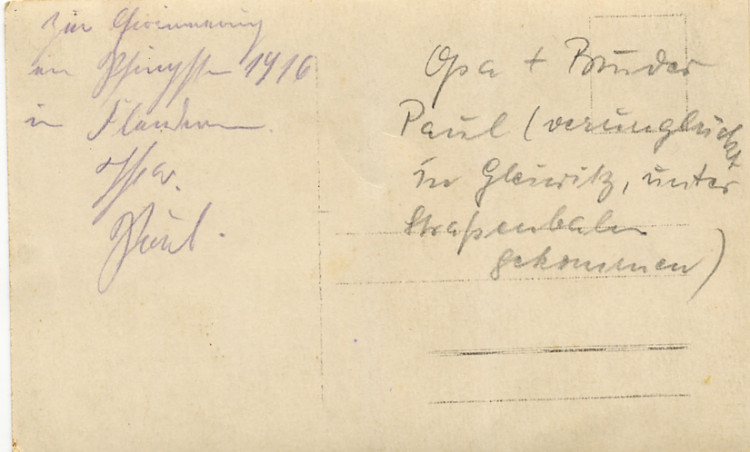 Zur Erinnerung
an Pfingsten 1916
in Flandern
Paul.
Opa + Bruder
Paul (verunglückt
in Gleiwitz, unter
Straßenbahn
gekommen)